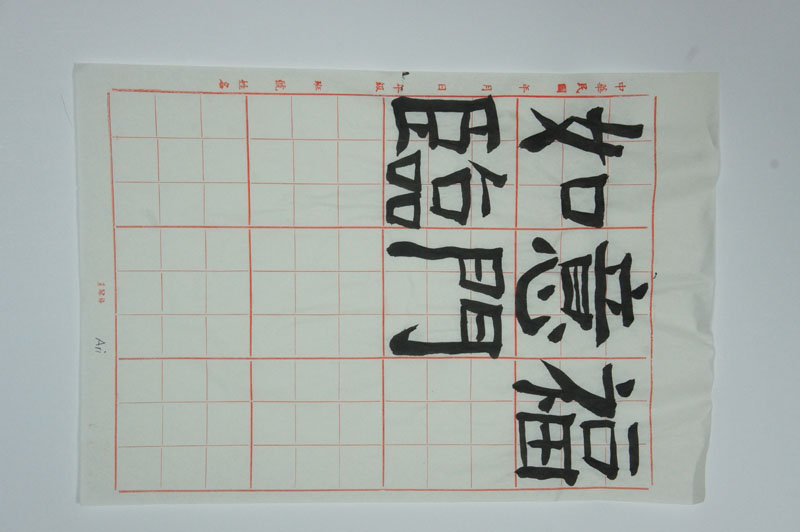 如意福
臨門
中華民國 年 月 日 年級 班 號 姓名